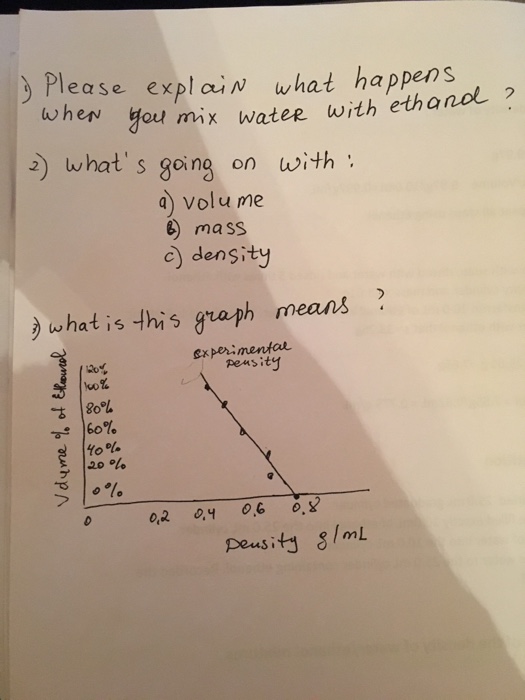 1) Please explain what happens
when you mix water with ethanol ?
2) what's going on with :
a) volume
b) mass
c) density
3) what is this graph means ?
experimental
Density
Volume % of Ethanol
120%
100%
80%
60%
40%
20%
0%
0 0,2 0,4 0,6 0.8
Density g/mL